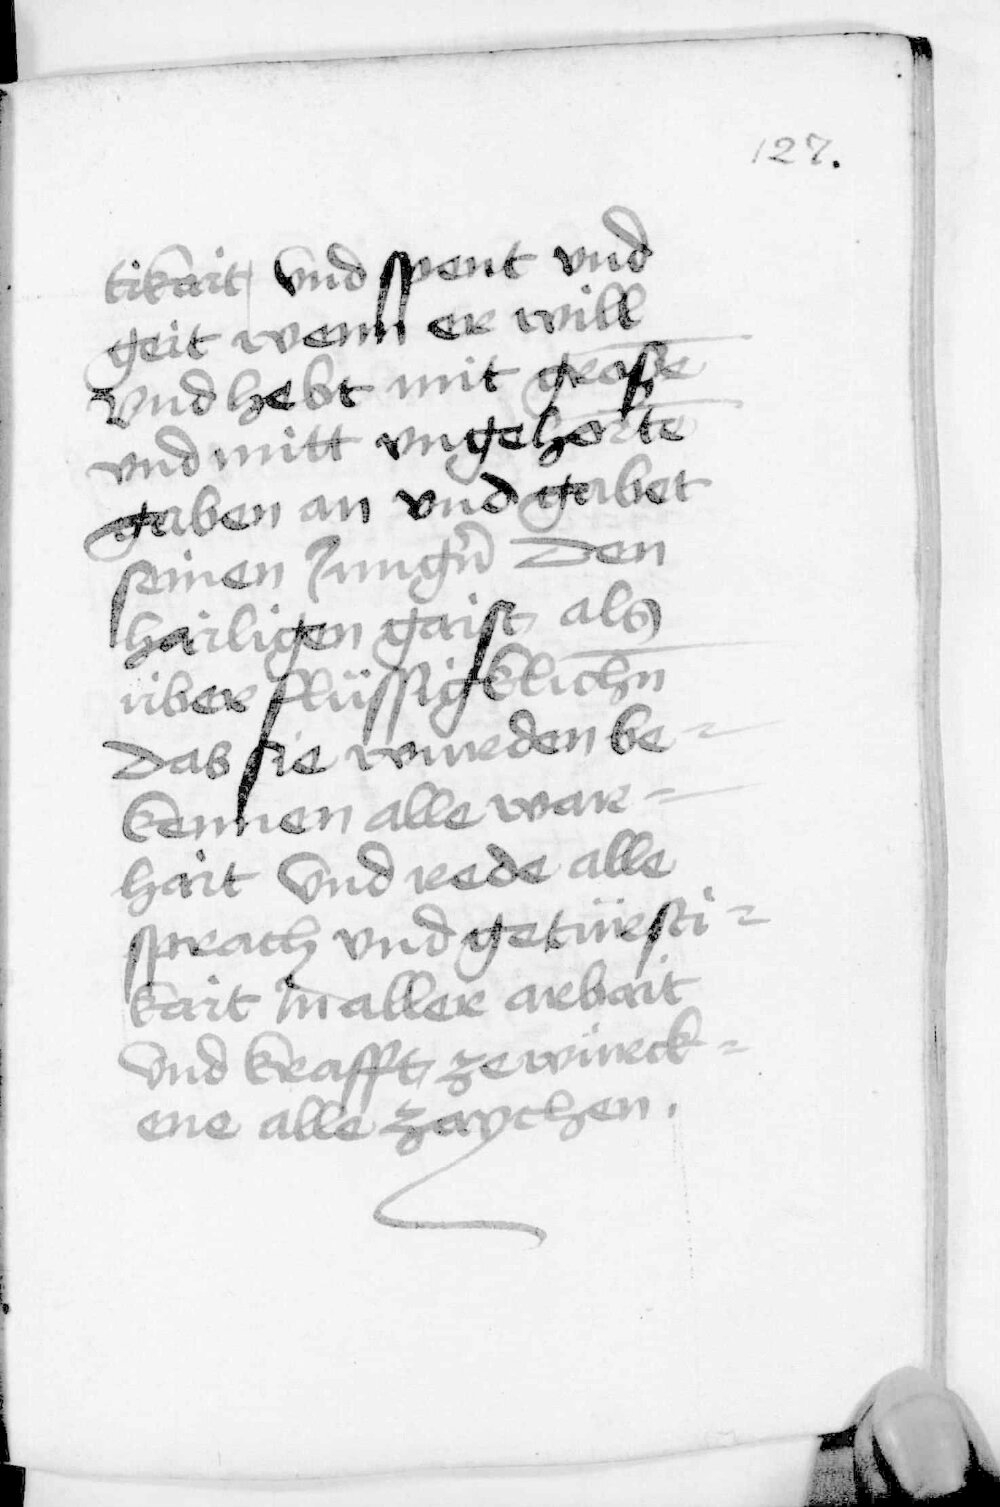 127.
tikait vnd spent vnd
geit wenn er will
vnd hebt mit groſſē
vnd mitt vngehortē
gaben an vnd gabet
seinen Jungn̄ den
hailigen gaist als
über flüssigklichn̄
das sie wurden be-
kennen alle war-
hait vnd rede alle
sprach vnd getürsti-
kait In aller arbait
vnd krafft ze würck-
ene alle zaychen.